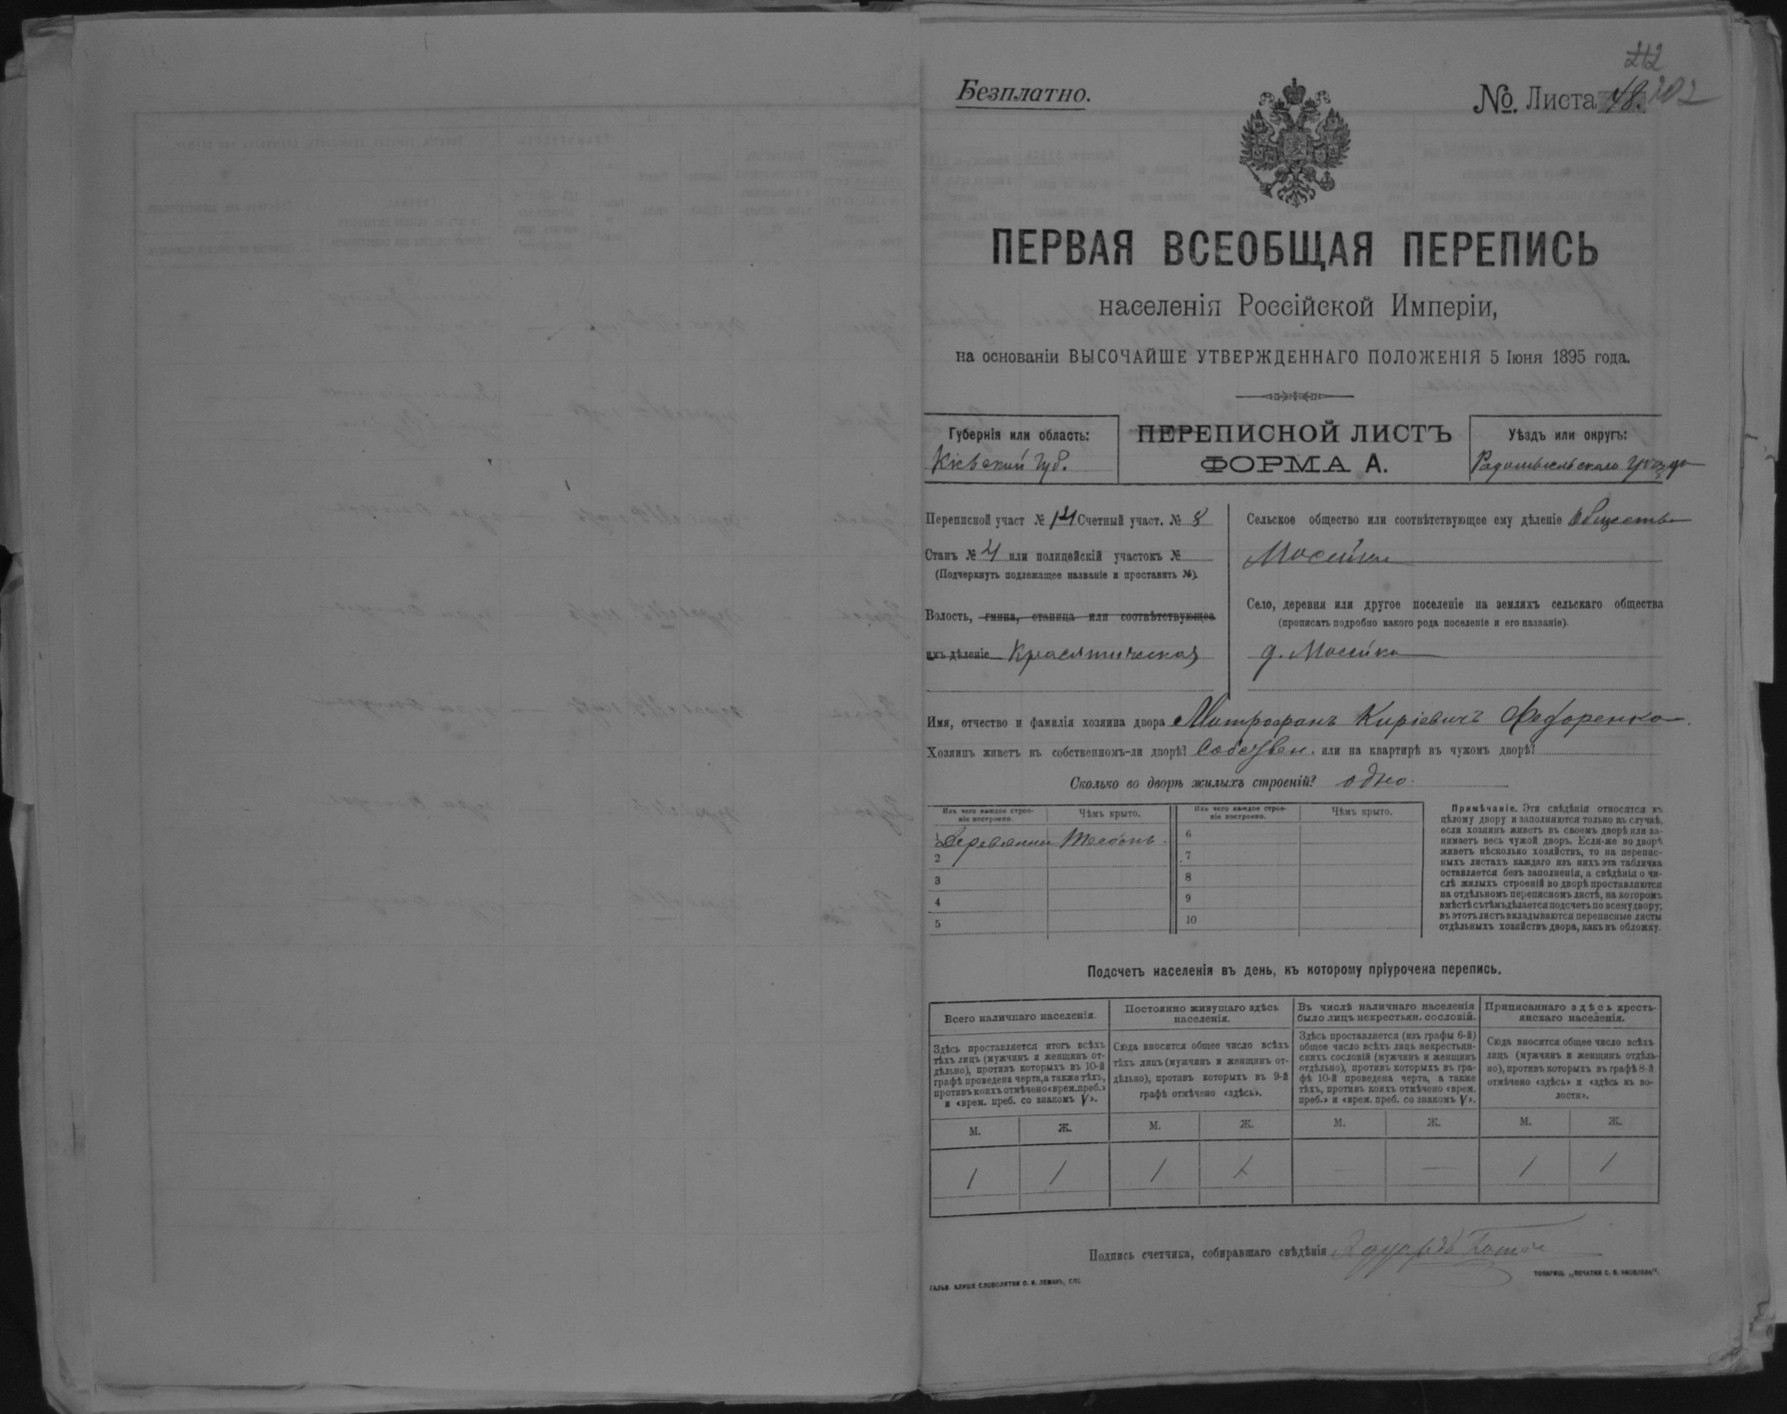 212
Безплатно.
№. Листа 48. 202
ПЕРВАЯ ВСЕОБЩАЯ ПЕРЕПИСЬ
населенія Россійской Имперіи,
на основаніи ВЫСОЧАЙШЕ УТВЕРЖДЕННАГО ПОЛОЖЕНІЯ 5 Іюня 1895 года.
Губернія или область:
Кіевский Губ.
ПЕРЕПИСНОЙ ЛИСТЪ
ФОРМА А.
Уѣздъ или округъ:
Радомысльскаго Уѣзда
Переписной участ № 14 Счетный участ. № 8
Станъ № 4 или полицейскій участокъ №
(Подчеркнуть подлежащее названіе и проставить №).
Волость, гмина, станица или соотвѣтствующее
имъ дѣленіе Красятическая
Сельское общество или соотвѣтствующее ему дѣленіе Общество
Мосейки
Село, деревня или другое поселеніе на земляхъ сельскаго общества
(прописать подробно какого рода поселеніе и его названіе).
д. Мосейки
Имя, отчество и фамилія хозяина двора Митрофанъ Киріевичъ Федоренко.
Хозяинъ живетъ въ собственномъ-ли дворѣ? Собствен. или на квартирѣ въ чужомъ дворѣ?
Сколько во дворѣ жилыхъ строеній? одно.
Изъ чего каждое строеніе построено.
Чѣмъ крыто.
Изъ чего каждое строеніе построено.
Чѣмъ крыто.
1 Деревянни
6
2
7
3
8
4
9
5
10
Примѣчаніе. Эти свѣдѣнія относятся къ
цѣлому двору и заполняются только въ случаѣ,
если хозяинъ живетъ въ своемъ дворѣ или за-
нимаетъ весь чужой дворъ. Если-же во дворѣ
живетъ нѣсколько хозяйствъ, то на перепис-
ныхъ листахъ каждаго изъ нихъ эта табличка
оставляется безъ заполненія, а свѣдѣнія о чи-
слѣ жилыхъ строеній во дворѣ проставляются
на отдѣльномъ переписномъ листѣ, на которомъ
вмѣстѣ съ тѣмъ дѣлается подсчетъ по всему двору;
въ этотъ листъ вкладываются переписные листы
отдѣльныхъ хозяйствъ двора, какъ въ обложку.
Подсчетъ населенія въ день, къ которому пріурочена перепись.
Всего наличнаго населенія.
Здѣсь проставляется итогъ всѣхъ
тѣхъ лицъ (мужчинъ и женщинъ от-
дѣльно), противъ которыхъ въ 10-й
графѣ проведена черта, а также тѣхъ,
противъ коихъ отмѣчено «врем. преб.»
и «врем. преб. со знакомъ V».
Постоянно живущаго здѣсь
населенія.
Сюда вносится общее число всѣхъ
тѣхъ лицъ (мужчинъ и женщинъ от-
дѣльно), противъ которыхъ въ 9-й
графѣ отмѣчено «здѣсь».
Въ числѣ наличнаго населенія
было лицъ некрестьян. сословій.
Здѣсь проставляется (изъ графы 6-й)
общее число всѣхъ лицъ некрестьян-
скихъ сословій (мужчинъ и женщинъ
отдѣльно), противъ которыхъ въ гра-
фѣ 10-й проведена черта, а также
тѣхъ, противъ коихъ отмѣчено «врем.
преб.» и «врем. преб. со знакомъ V».
Приписаннаго здѣсь кресть-
янскаго населенія.
Сюда вносится общее число всѣхъ
лицъ (мужчинъ и женщинъ отдѣль-
но), противъ которыхъ въ графѣ 8-й
отмѣчено «здѣсь» и «здѣсь въ во-
лости».
М. Ж. М. Ж. М. Ж. М. Ж.
1 1 1 1 — — 1 1
Подпись счетчика, собиравшаго свѣдѣнія Эдуардъ
ГАЛЬВ. КЛИШЕ СЛОВОЛИТНИ О. И. ЛЕМАНЪ, СПБ.
ТОВАРИЩ. „ПЕЧАТНЯ С. П. ЯКОВЛЕВА“.